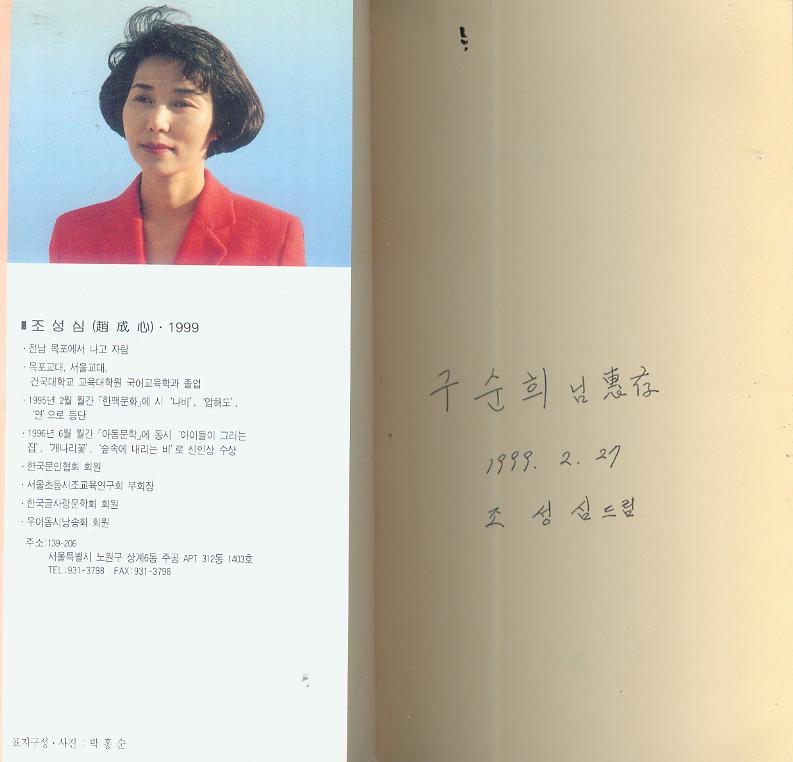 조성심(趙成心)·1999
·전남 목포에서 나고 자람
·목포교대, 서울교대,
건국대학교 교육대학원 국어교육학과 졸업
·1995년 2월 월간「한맥문화」에 시 '나비', '압해도',
'연'으로 등단
·1996년 6월 월간「아동문학」에 동시 '아이들이 그리는
집', '개나리꽃', '숲속에 내리는 비'로 신인상 수상
·한국문인협회 회원
·서울초등시조교육연구회 부회장
·한국글사랑문학회 회원
·우이동시낭송회 회원
주소:139-206
서울특별시 노원구 상계6동 주공 APT 312동 1403호
TEL:931-3798 FAX:931-3798
표지구성·사진 : 박홍순
구순희님惠存
1999. 2. 27
조성심드림